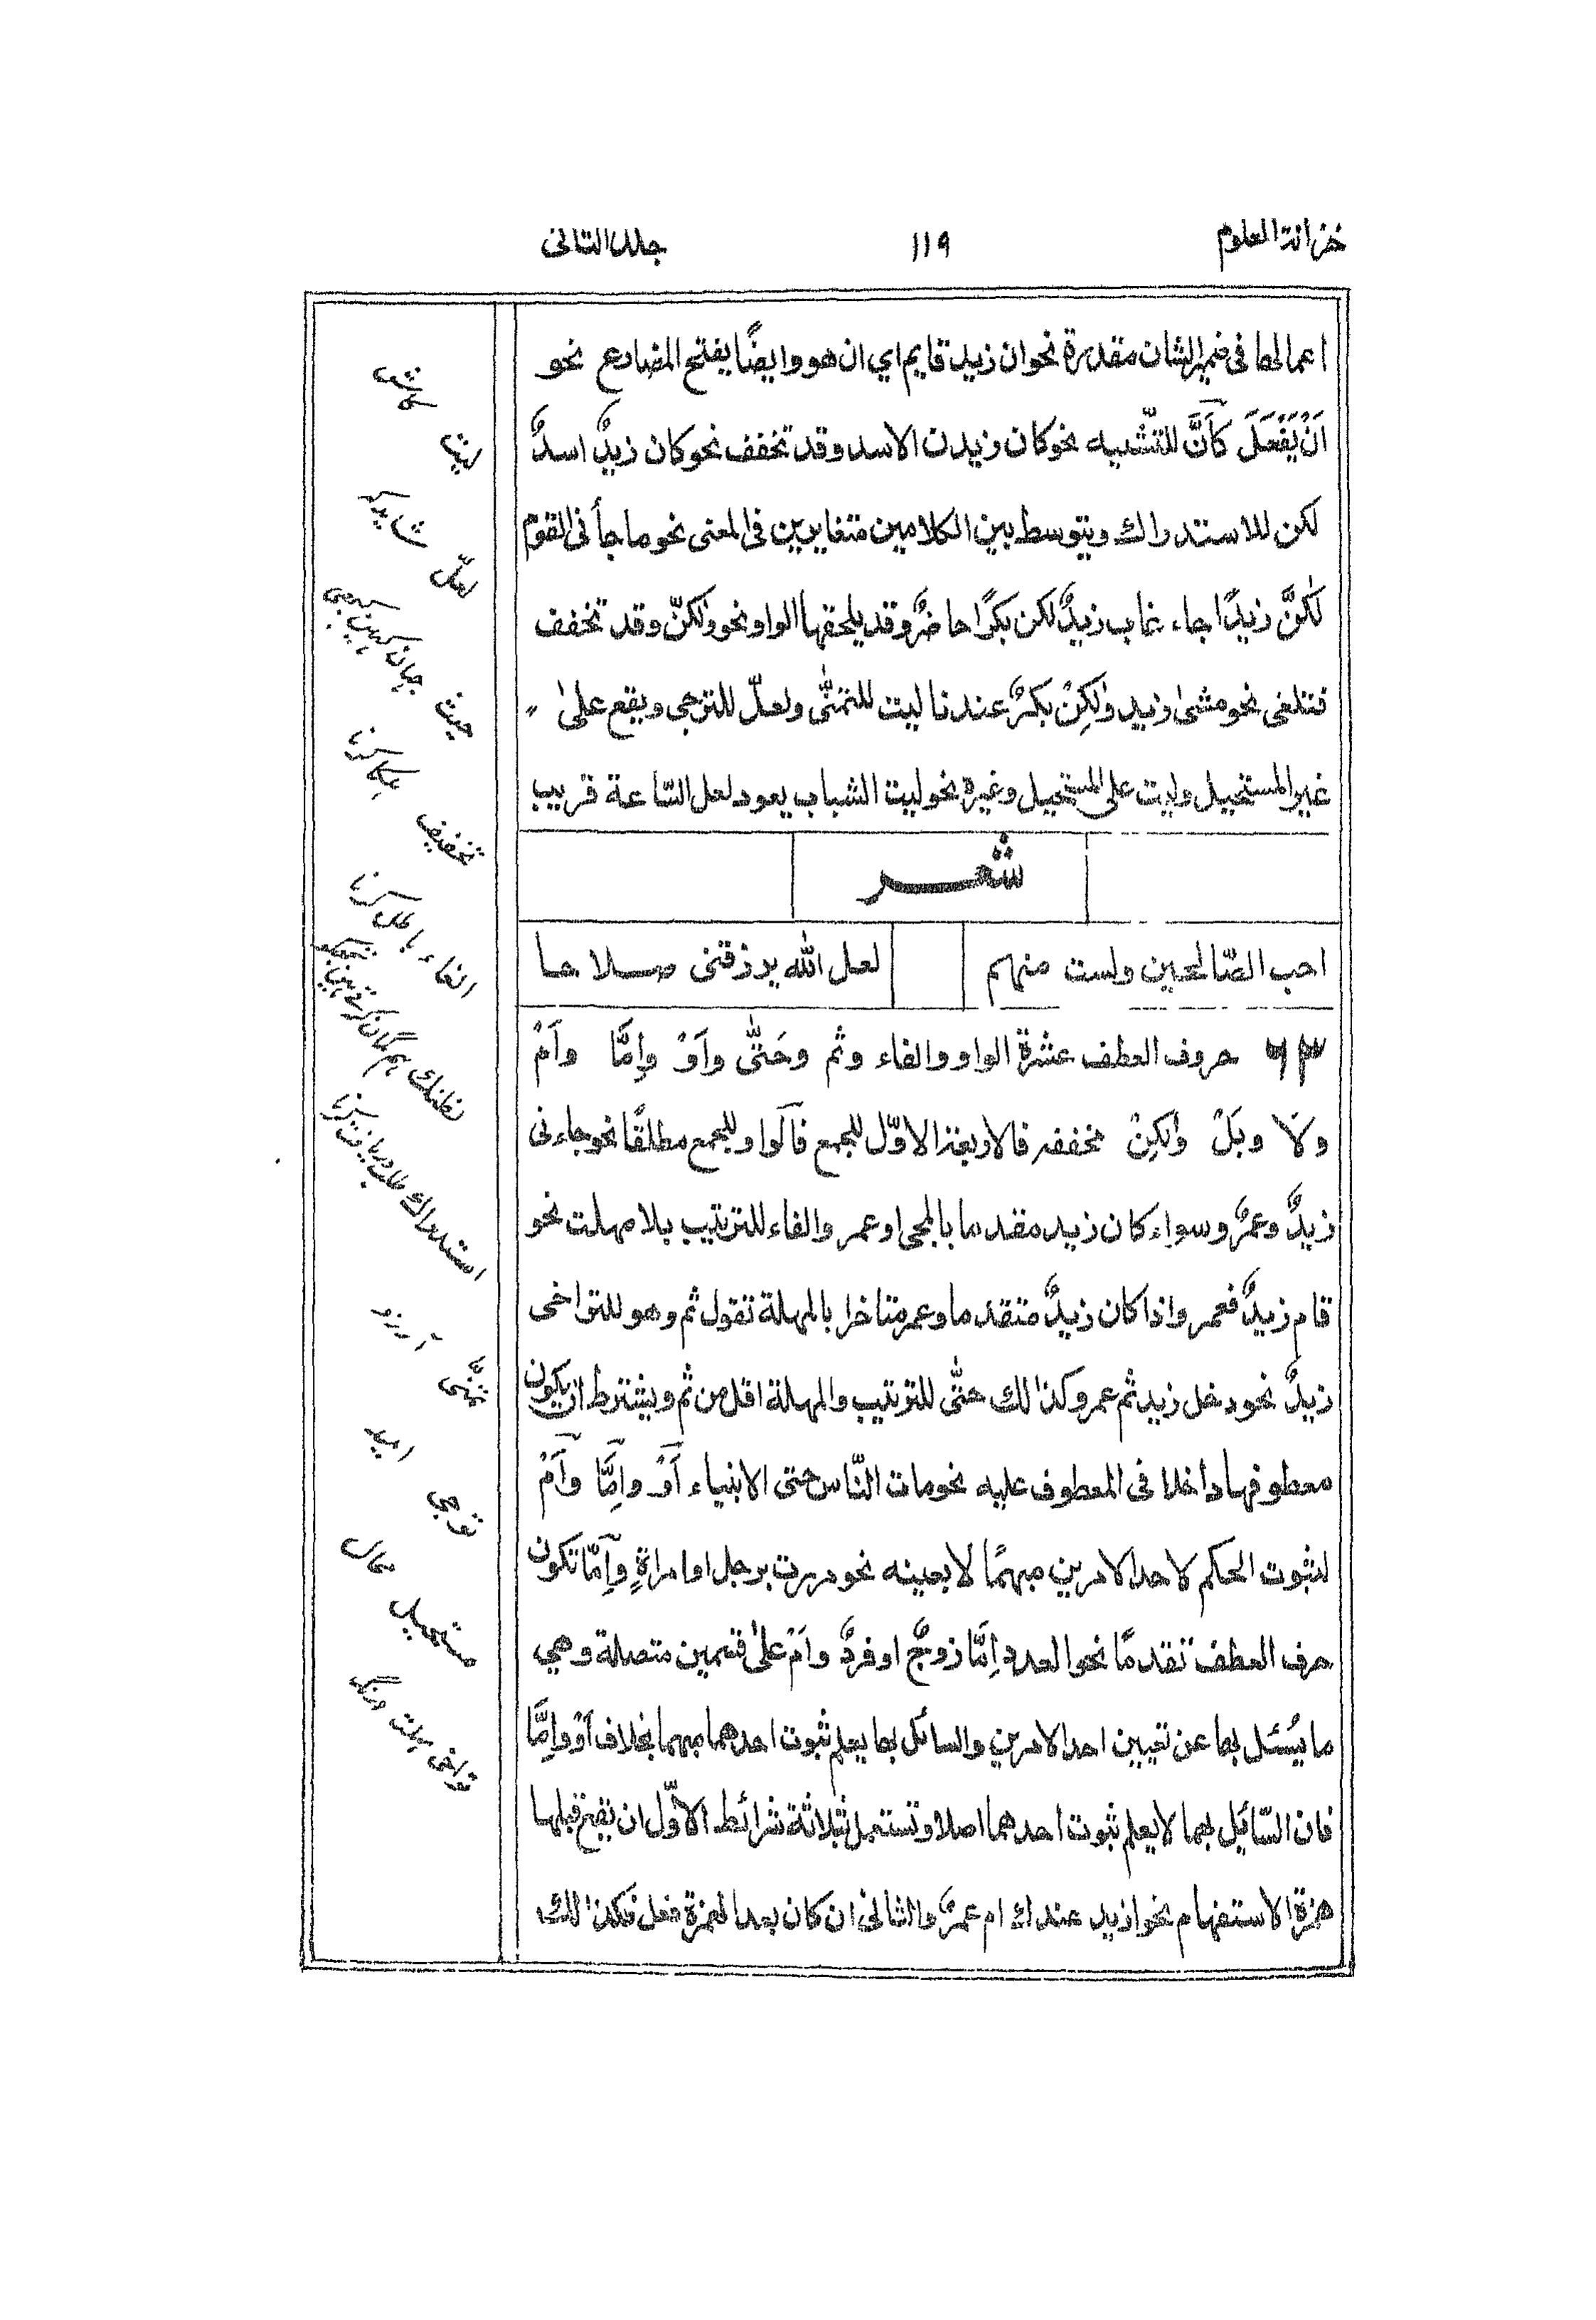 خزانة العلوم ١١٩ جلد الثانى
اعمالها فى ضمير الشان مقدرة نحو ان زيد قايم اي ان هو وايضًا يفتح المضارع نحو
اَنْ يَفْعَلَ كَاَنَّ للتشبيه نحو كان زيدن الاسد وقد تخفف نحو كان زيدٌ اسدٌ
لكن للاستدراك ويتوسط بين الكلامين متغايرين فى المعنى نحو ما جأنى القوم
لٰكنَّ زيدًا جاء غاب زيدٌ لكن بكرًا حاضرٌ وقد يلحقها الواو نحو ولٰكنّ وقد تخفف
فتلغى نحو مشىٰ زيد ولٰكِنْ بكرٌ عندنا ليت للتمنّٰى ولعلّ للترجى ويقع علىٰ
غير المستحيل وليت على المستحيل وغيره نحو ليت الشباب يعود لعل السّاعة قريب
شعر
احب الصّالحين ولست منهم لعل اللّٰه يرزقنى صلاحا
٦٣ حروف العطف عشرة الواو والفاء وثم وحَتّٰى واَوْ وإمَّا واَمْ
ولَا وبَلْ ولٰكِنْ مخففه فالاربعة الاوّل للجمع فاَلواو للجمع مطلقًا نحو جاءنى
زيدٌ وعمرٌ وسواء كان زيد مقدما بالمجى او عمر والفاء للترتيب بلا مهلت نحو
قام زيدٌ فعمر واذا كان زيدٌ متقدما وعمر متاخرا بالمهلة تقول ثم وهو للتواخى
زيدٌ نحو دخل زيد ثم عمر وكذالك حتّٰى للترتيب والمهلة اقل من ثم ويشترط ان يكون
معطوفها داخلا فى المعطوف عليه نحو مات النّاس حتى الانبياء اَوْ واِمَّا واَمْ
لثبوت الحكم لاحد الامرين مبهمًا لا بعينه نحو مررت برجل او امراةٍ واِمّا تكون
حرف العطف تقدمًا نحو العدد اِمَّا زوجٌ او فردٌ واَمْ علىٰ قسمين متصلة وهي
ما يُسْئل بها عن تعيين احد الامرين والسائل بها يعلم ثبوت احدهما مبهما بخلاف اَوْ واِمَّا
فان السّائِل بهما لا يعلم ثبوت احدهما اصلا وتستعمل بثلاثة شرائط الاوّل ان يقع قبلها
همزة الاستفهام نحو ازيد عندك ام عمرٌ والثانى ان كان بعد الهمزة فعل فكذالك
ليت كاش
لعلّ شايدكه
حيث جہان كہين كہ
تخفيف ہلكا كرنا
الغاء باطل كرنا
نظنك ہم گمان كرتے ہين
استدراك طلب دريافت كرنا
تمنّٰى آرزو
ترجى اميد
مستحيل محال
تراخى مہلت درنگ